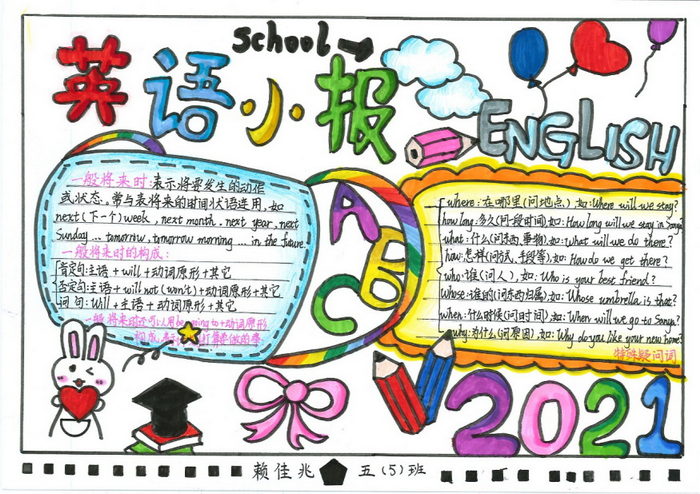 school
英语小报
ENGLISH
一般将来时:表示将要发生的动作
或状态,常与表将来的时间状语连用,如
next(下一个)week, next month, next year, next
Sunday … tomorrow, tomorrow morning … in the future.
一般将来时的构成:
肯定句:主语+will+动词原形+其它
否定句:主语+will not (won't)+动词原形+其它
问句:Will+主语+动词原形+其它
一般将来时还可以用be going to+动词原形
构成,表示
ABC
where:在哪里(问地点).如:Where will we stay?
how long:多久(问一段时间).如:How long will we stay in Sanya?
what:什么(问东西,事物).如:What will we do there?
how:怎样(问方式,手段等).如:How do we get there?
who:谁(问人).如:Who is your best friend?
whose:谁的(问东西归属).如:Whose umbrella is that?
when:什么时候(问时间).如:When will we go to Sanya?
why:为什么(问原因).如:Why do you like your new home?
特殊疑问词
2021
赖佳兆 五(5)班